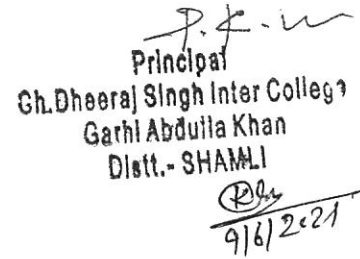 P. K.
Principal
Ch. Dheeraj Singh Inter College
Garhi Abdulla Khan
Distt.- SHAMLI
9/6/2021